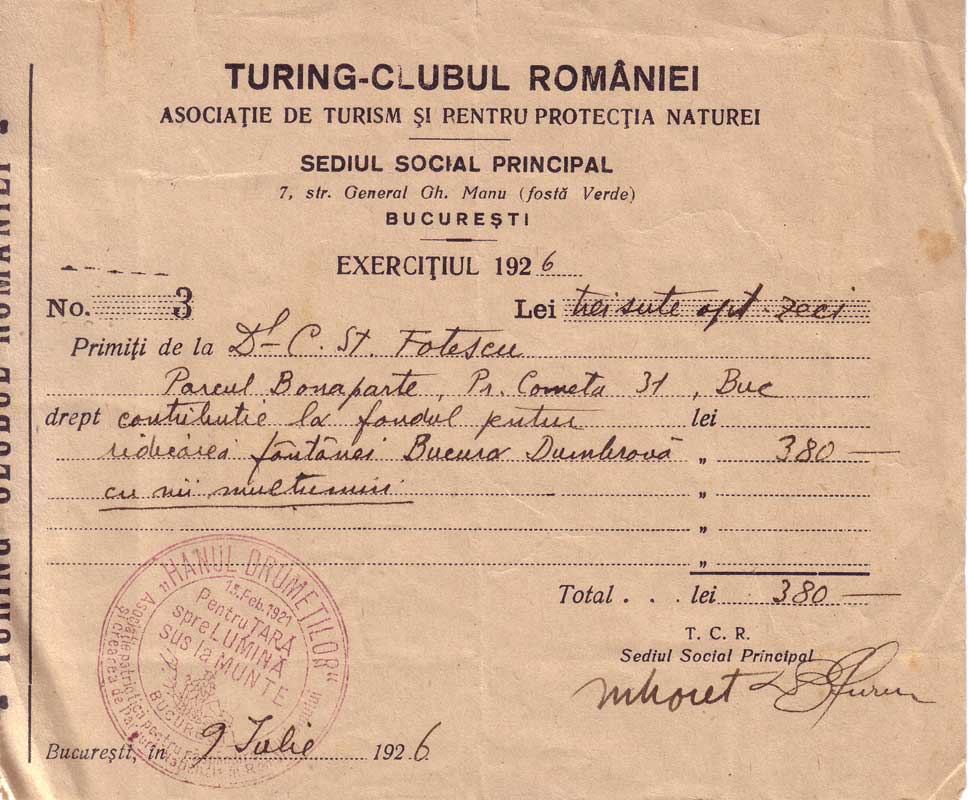 TURING-CLUBUL ROMÂNIEI
ASOCIAȚIE DE TURISM ȘI PENTRU PROTECȚIA NATUREI
SEDIUL SOCIAL PRINCIPAL
7, str. General Gh. Manu (fostă Verde)
BUCUREȘTI
EXERCIȚIUL 1926
No. 3 Lei trei sute opt-zeci
Primiți de la Dl C. St. Fotescu
Parcul Bonaparte, Pr. Cometa 31, Buc
drept contributie la fondul pentru lei
ridicarea fântânei Bucura Dumbravă „ 380 —
cu mii multumiri „
„
„
Total . . . lei 380 —
T. C. R.
Sediul Social Principal
București, in 9 Iulie 1926
„HANUL DRUMEȚILOR"
15. Feb. 1921
Pentru ȚARĂ
spre LUMINĂ
sus la MUNTE
Asociație patriotica pentru
și crearea de Parcuri
TURING CLUBUL ROMÂNIEI